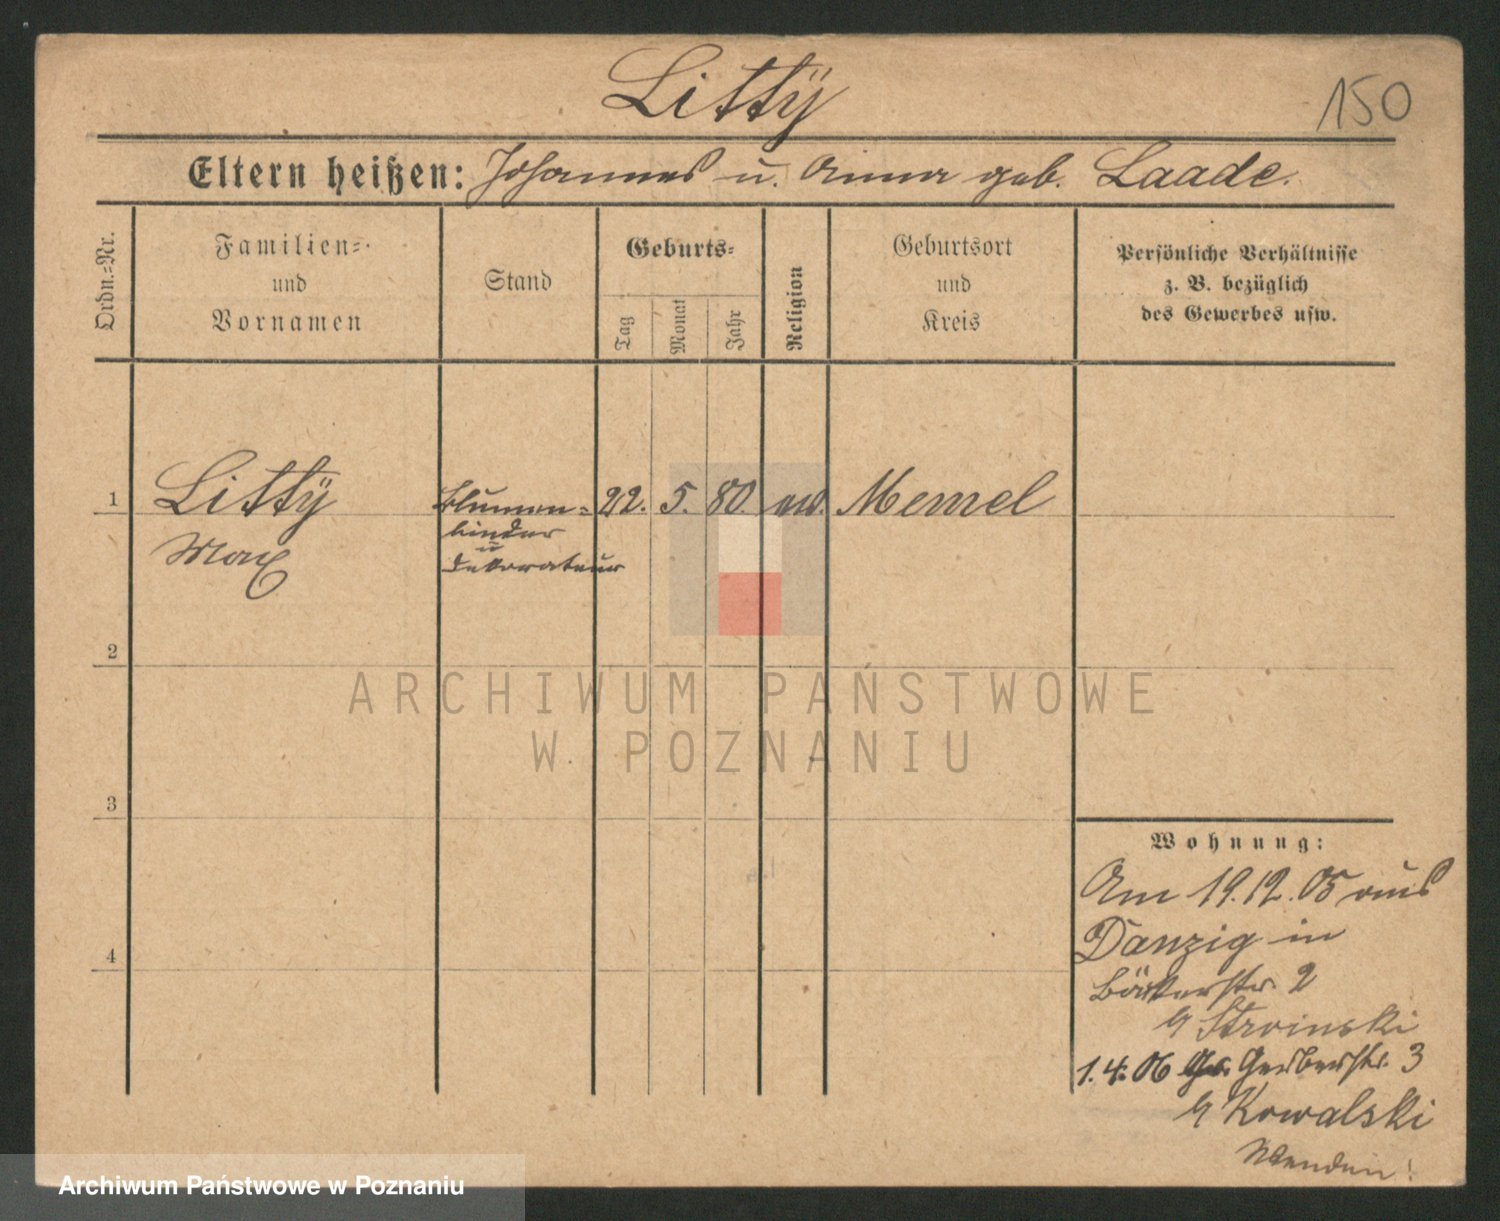 Littÿ
150
Eltern heißen: Johannes u. Anna geb. Laade.
Ordn.=Nr.
Familien=
und
Vornamen
Stand
Geburts=
Tag
Monat
Jahr
Religion
Geburtsort
und
Kreis
Persönliche Verhältnisse
z. B. bezüglich
des Gewerbes usw.
1 Littÿ Blumen= 22. 5. 80. ev. Memel
Max binder
u
Dekorateur
2
ARCHIWUM PAŃSTWOWE
W POZNANIU
3
Wohnung:
Am 19.12.05 aus
Danzig in
Bäckerstr. 2
Stroinski
4
1.4.06 Gr. Gerberstr. 3
Kowalski
Wenden!
Archiwum Państwowe w Poznaniu